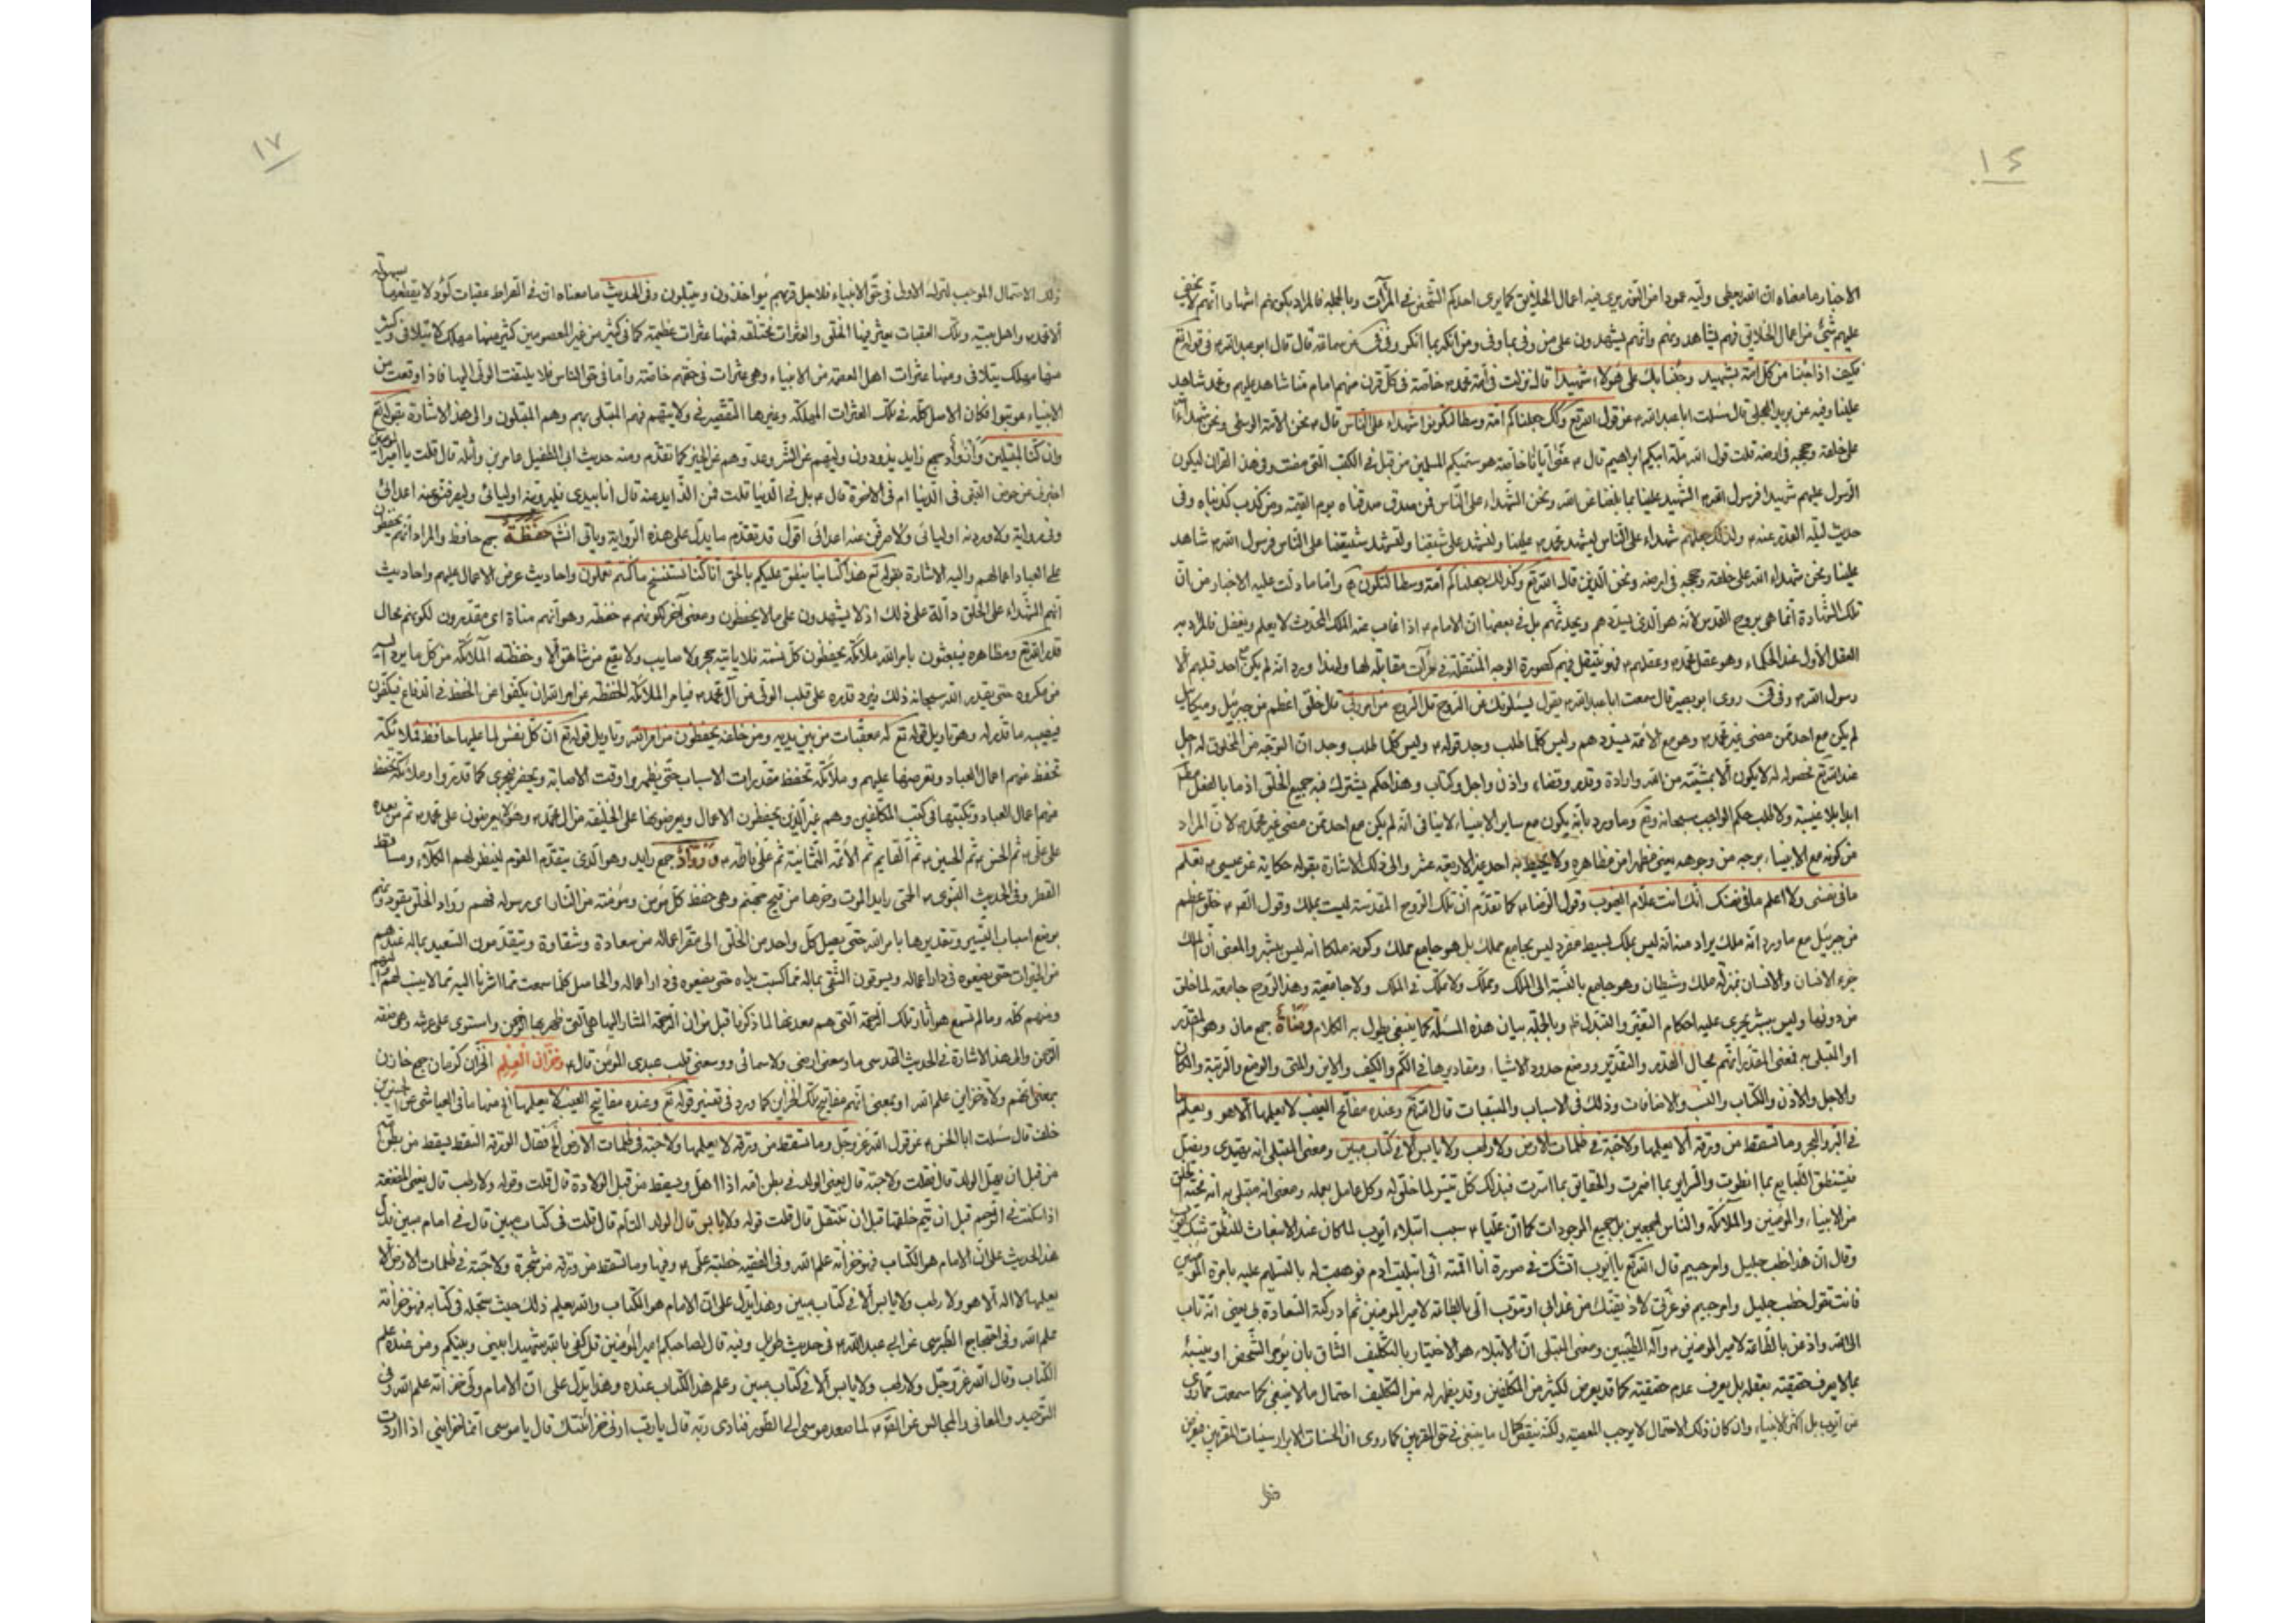 ١٤
الاخبار ما معناه ان الله يعطى وليّه عمودا من النور يرى فيه اعمال الخلايق كما يرى احدكم الشخص فى المرآت وبالجملة فالمراد بكونهم اشهادا انهم لا يخفى
عليهم شئ من اعمال الخلايق فهم يشاهدونهم وانهم يشهدون على من وفى بما وفى ومن انكر بما انكر وفى سماعة قال قال ابو عبد الله ۴ فى قوله تع
فكيف اذا جئنا من كل امّة بشهيد وجئنا بك على هؤلاء شهيدا قال نزلت فى امّة محمد ۴ خاصّة فى كل قرن منهم امام منّا شاهد عليهم ومحمد شاهد
علينا وفيه عن بريد العجلى قال سئلت ابا عبد الله ۴ عن قول الله تع وكذلك جعلناكم امّة وسطا لتكونوا شهداء على الناس قال ۴ نحن الامّة الوسطى ونحن شهداء الله
على خلقه وحججه فى ارضه قلت قول الله ملّة ابيكم ابراهيم قال ۴ عنّى ايّانا خاصّة هو سمّيكم المسلمين من قبل فى الكتب التى مضت وفى هذا القران ليكون
الرسول عليهم شهيدا فرسول الله ۴ الشهيد علينا بما بلغنا عن الله ونحن الشهداء على الناس فمن صدق صدقناه يوم القيمة ومن كذب كذبناه وفى
حديث ليلة القدر عنه ۴ ولذلك جعلهم شهداء على الناس ليشهد محمد ۴ علينا ولنشهد على شيعتنا ولتشهد شيعتنا على الناس فرسول الله ۴ شاهد
علينا ونحن شهداء الله على خلقه وحججه فى ارضه ونحن الذين قال الله تع وكذلك جعلناكم امّة وسطا لتكونوا وامّا ما دلت عليه الاخبار من ان
تلك الشهادة انّما هى بروح القدس لانّه هو الذى يسدّدهم ويحدثهم بل فى بعضها ان الامام ۴ اذا غاب عنه الملك المحدث لا يعلم ويغفل فالمراد به
العقل الاول عند الحكماء وهو عقل محمد ۴ وعقلهم ۴ فهو ينتقل فيهم كصورة الوجه المنتقلة فى مرآت مقابلة لها ولهذا ورد انه لم يكن مع احد قبلهم الا
رسول الله ۴ وفى روى ابو بصير قال سمعت ابا عبد الله ۴ يقول يسئلونك عن الروح قل الروح من امر ربى قال خلق اعظم من جبرئيل وميكائيل
لم يكن مع احد ممن مضى غير محمد ۴ وهو مع الائمة يسدّدهم وليس كلما طلب وجد قوله ۴ وليس كلّما طلب وجد ان التوجّه من المخلوق له اجل
عند الله تع فحصوله له لا يكون الا بمشيّته من الله وارادة وقدر وقضاء واذن واجل وكتاب وهذا حكم يشترك فيه جميع الخلق اذ ما بالفعل
ابدا بلا غيبة ولا طلب حكم الواجب سبحانه وتع وما ورد بانّه يكون مع ساير الانبياء لا ينافى انه لم يكن مع احد ممن مضى غير محمد ۴ لان المراد
من كونه مع الانبياء بوجه من وجوهه يعنى مظهرا من مظاهره ولا يحيط به احد غير الاربعة عشر والى ذلك الاشارة بقوله حكاية عن عيسى ۴ تعلم
ما فى نفسى ولا اعلم ما فى نفسك انك انت علّام الغيوب وقول الرضا ۴ كما تقدّم ان تلك الروح المقدسة ليست بملك وقول الله ۴ خلق اعظم
من جبرئيل مع ما ورد انه ملك يراد منه انّه ليس بملك بسيط مفرد ليس بجامع مملك بل هو جامع مملك وكونه ملكا انه ليس ببشر والمعنى ان الملك
جزء الانسان والانسان بمنزلة ملك وشيطان وهو جامع بالنسبة الى الملك ومملك ولا مملك فى الملك ولا جامعيّة وهذا الروح جامعة لما خلق
من دونها وليس ببشر يجرى عليه احكام التغيّر والتبدّل وبالجملة بيان هذه المسئلة كما ينبغى يطول به الكلام ومناة جمع مان وهو المقدّر
او المبتلى به فمعنى المقدّر انّهم محال القدر والتقدير ووضع حدود الاشياء ومقاديرها فى الكم والكيف والاين والمتى والوضع والرتبة والمكان
والاجل والاذن والكتاب والنسب والاضافات وذلك فى الاسباب والمسببات قال الله تع وعنده مفاتح الغيب لا يعلمها الا هو ويعلم ما
فى البرّ والبحر وما تسقط من ورقة الا يعلمها ولا حبّة فى ظلمات الارض ولا رطب ولا يابس الا فى كتاب مبين ومعنى المبتلى انه يهتدى ويضلّ
فيستنطق الطبايع بما انطوت والسراير بما اضمرت والحقايق بما اسرت فبذلك كل تيسّر لما خلق له وكل عامل بعمله ومعنى انه مبتلى به انه محنة الخلق
من الانبياء والمؤمنين والملائكة والناس اجمعين بل جميع الموجودات كما ان عليّا ۴ سبب ابتلاء ايوب لما كان عند الانبعاث للنطق شك
وقال ان هذا خطب جليل وامر جسيم قال الله تع يا ايوب اتشك فى صورة انا اقمته انّى ابتليت ادم فوهبت له بالتسليم عليه بامرة المؤمنين
فانت تقول خطب جليل وامر جسيم فوعزّتى لاذيقنّك من عذابى او تتوب الىّ بالطاعة لامير المؤمنين ثم ادركته السعادة بى يعنى انّه تاب
الى الله واذعن بالطاعة لامير المؤمنين ۴ وآله الطيّبين ومعنى المبتلى ان الابتلاء هو الاختبار بالتكليف الشاق بان يؤمر الشخص او ينسبه
بما لا يعرف حقيقته بعقله بل يعرف عدم حقيقته كما قد يعرض لكثير من المكلفين وقد يظهر له من التكليف احتمال ما لا ينبغى كما سمعت مما روى
من ايوب بل اكثر الانبياء وان كان ذلك الاحتمال لا يوجب المعصية ولكنه ينقص كمال ما ينبغى فى حق المقربين كما روى ان الحسنات الابرار سيئات المقربين
١٧
ذلك الاحتمال الموجب لترك الاولى فى حق الانبياء فلاجل قربهم يؤاخذون ويبتلون وفى الحديث ما معناه ان فى الصراط عقبات كؤد لا يقطعها بسهولة
الا محمد ۴ واهل بيته وتلك العقبات يعثر فيها الخلق والعثرات مختلفة فمنها عثرات عظيمة كما فى كثير من غير المعصومين كثير منها مهلك لا يتلافى وكثير
منها مهلك يتلافى ومنها عثرات اهل العصمة من الانبياء وهى عثرات فى حقهم خاصّة وامّا فى حق الناس فلا يلتفت الولى اليها فاذا وقعت من
الانبياء عوتبوا فكان الاصل كلّه فى تلك العثرات المهلكة وغيرها التقصير فى ولايتهم فهم المبتلى بهم وهم المبتلون والى هذا الاشارة بقوله تع
وان كنا لمبتلين واذواد جمع زايد يذودون وليهم عن الشر وعدوهم عن الخير كما تقدّم ومنه حديث ابى الطفيل عامر بن واثلة قال قلت يا امير المؤمنين
اخبرنى عن حوض النبى فى الدنيا ام فى الاخرة قال ۴ بل فى الدنيا قلت فمن الذايد عنه قال انا بيدى فليردنّه اوليائى وليصرفنّ عنه اعدائى
وفى رواية ولاوردنه اوليائى ولاصرفنّ عنه اعدائى اقول قد تقدّم ما يدلّ على هذه الرواية وياتى انشاء حفظة جمع حافظ والمراد انهم يحفظون
على العباد اعمالهم واليه الاشارة بقوله تع هذا كتابنا ينطق عليكم بالحق انا كنا نستنسخ ما كنتم تعملون واحاديث عرض الاعمال عليهم واحاديث
انهم الشهداء على الخلق دالّة على ذلك اذ لا يشهدون على ما لا يحفظون ومعنى آخر لكونهم ۴ حفظة وهو انهم مناة اى مقدّرون لكونهم محال
قدر الله تع ومظاهره فيبعثون بامر الله ملائكة يحفظون كل نسمة فلا ياتيه حجر ولا صايب ولا يقع من شاهق الا وحفظته الملائكة من كل ما يرد اليه
من مكروه حتى يقدر الله سبحانه ذلك فيرد قدره على قلب الولى من آل محمد ۴ فيامر الملائكة الحفظة عن امر الله ان يكفوا عن الحفظ فى الدفاع فيكفون
فيصيبه ما قدر له وهو تاويل قوله تع له معقبات من بين يديه ومن خلفه يحفظون من امر الله وتاويل قوله تع ان كل نفس لما عليها حافظ فملائكة
تحفظ عنهم اعمال العباد وتعرضها عليهم وملائكة تحفظ مقدرات الاسباب حتى يظهروا وقت الاصابة ويحفر فيجرى كما قدروا وملائكة تحفظ
عنهم اعمال العباد وتكتبها فى كتب المكلفين وهم غير الذين يحفظون الاعمال ويعرضونها على الخليفة من ال محمد ۴ وهؤلاء يعرضون على محمد ۴ ثم من بعده
على على ۴ ثم الحسن ۴ ثم الحسين ۴ ثم القايم ثم الائمة الثمانية ثم على فاطمة ۴ وروّاد جمع رايد وهو الذى يتقدّم القوم لينظر لهم الكلاء ومساقط
القطر وفى الحديث النبوى ۴ الحمى رايد الموت وحرها من فيح جهنم وهى حفظ كل مؤمن ومؤمنة من النار اى رسوله فهم روّاد الخلق يقودونهم
بوضع اسباب التيسير وتقديرها بامر الله حتى يصل كل واحد من الخلق الى مقر اعماله من سعادة وشقاوة ويتقدّمون السعيد بما له عندهم
من الخيرات حتى يضعوه فى دار اعماله ويسوقون الشقى بما له مما كسبت يداه حتى يضعوه فى دار اعماله والحاصل كلما سمعت مما اشرنا اليه مما لا ينسب لهم اليهم
ومنهم كلّه وما لم تسمع هو آثار تلك الرحمة التى هم معدنها لما ذكرنا قبل من ان الرحمة المشار اليها هى التى ظهر بها الرحمن واستوى على عرشه وهى صفة
الرحمن والى هذا الاشارة فى الحديث القدسى ما وسعنى ارضى ولا سمائى ووسعنى قلب عبدى المؤمن قال ۴ وخزّان العلم الخزّان كرمان جمع خازن
بمعنى انهم ولاة خزاين علم الله او بمعنى انهم مفاتيح تلك الخزاين كما ورد فى تفسير قوله تع وعنده مفاتيح الغيب لا يعلمها الخ منها ما فى العياشى عن الحسين بن
خلف قال سئلت ابا الحسن ۴ عن قول الله عز وجل وما تسقط من ورقة لا يعلمها ولا حبّة فى ظلمات الارض الخ فقال الورقة السقط يسقط من بطن امّه
من قبل ان يهلّ الولد قال فقلت ولا حبّة قال يعنى الولد فى بطن امّه اذا اهلّ ويسقط من قبل الولادة قال قلت وقوله ولا رطب قال يعنى المضغة
اذا سكنت فى الرحم قبل ان يتم خلقها قبل ان تنتقل قال قلت قوله ولا يابس قال الولد التام قال قلت فى كتاب مبين قال فى امام مبين فدلّ
هذا الحديث على ان الامام هو الكتاب فهو خزانة علم الله وفى الفقيه خطبة على ۴ وفيها وما تسقط من ورقة من شجرة ولا حبّة فى ظلمات الارض الا
يعلمها لا اله الا هو ولا رطب ولا يابس الا فى كتاب مبين وهذا يدل على ان الامام هو الكتاب والله يعلم ذلك حيث سجّله فى كتابه فهو خزانة
علم الله وفى احتجاج الطبرسى عن ابى عبد الله ۴ فى حديث طويل وفيه قال لصاحبكم امير المؤمنين قل كفى بالله شهيدا بينى وبينكم ومن عنده علم
الكتاب وقال الله عز وجل ولا رطب ولا يابس الا فى كتاب مبين وعلم هذا الكتاب عنده وهذا يدل على ان الامام ولى خزانة علم الله وفى
التوحيد والمعانى والمجالس عن الله ۴ لما صعد موسى الى الطور فنادى ربّه قال يا رب ارنى خزائنك قال يا موسى انما خزاينى اذا اردت